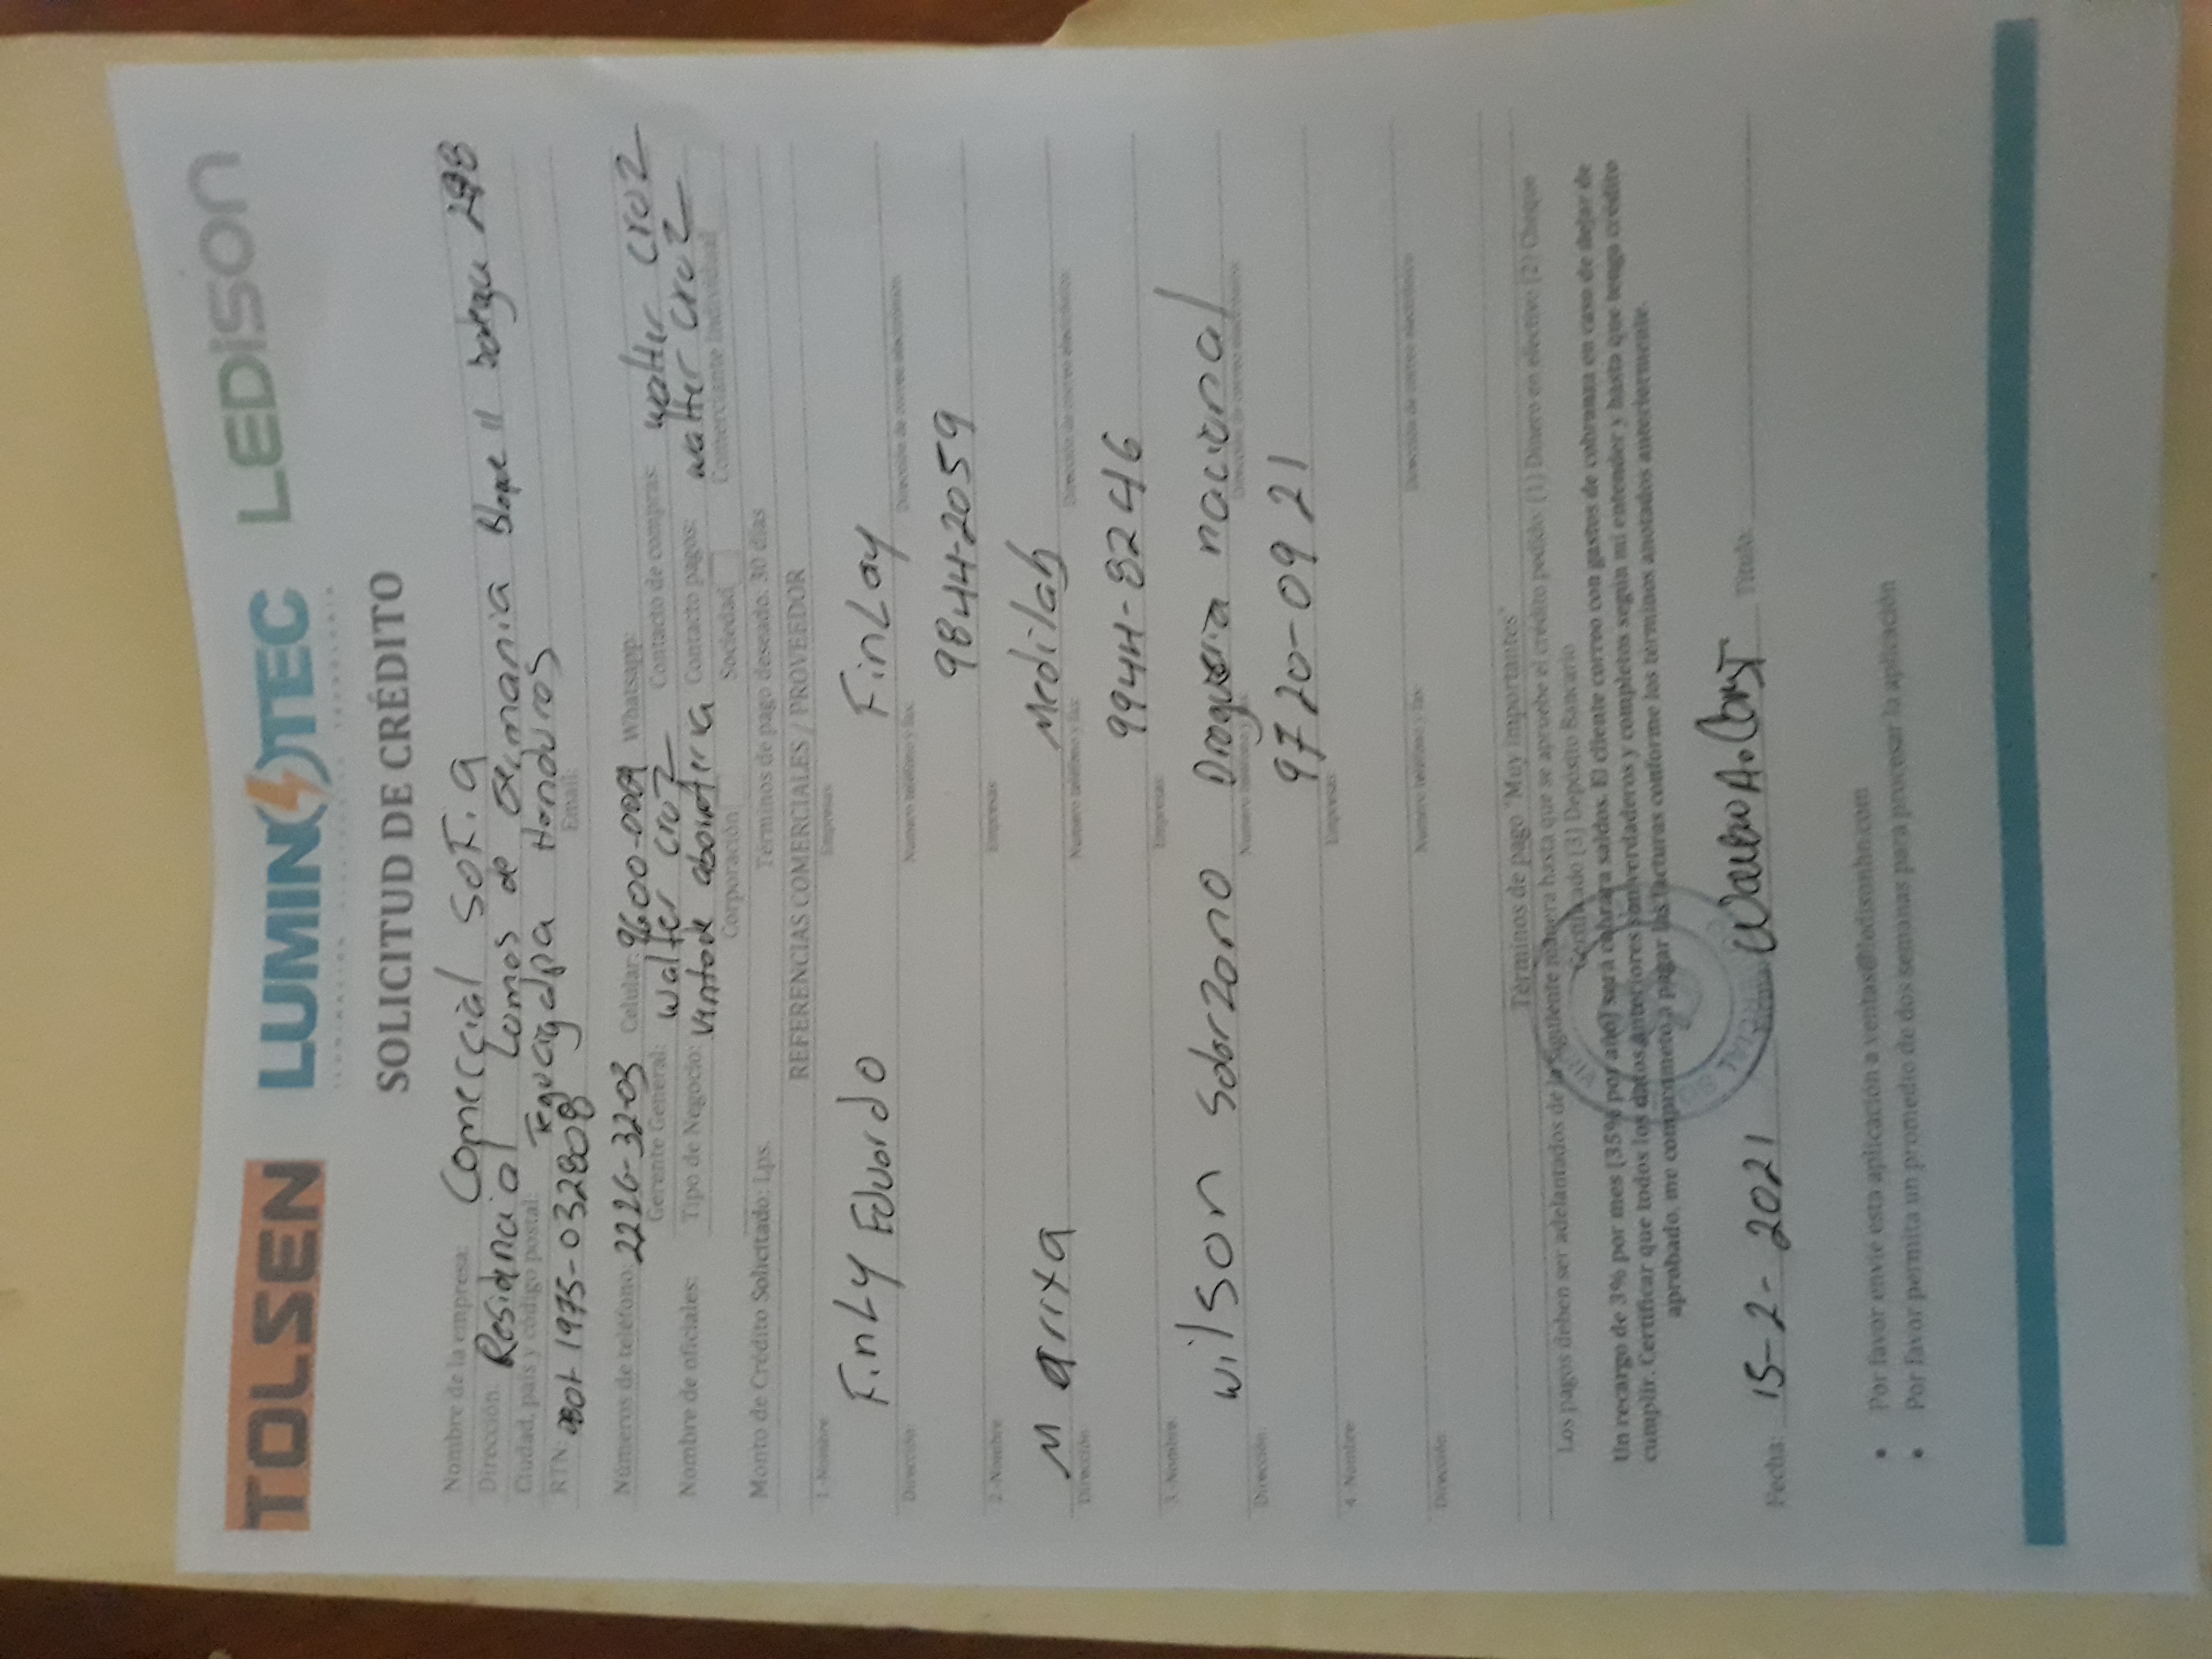 TOLSEN LUMINOTEC LEDISON
SOLICITUD DE CRÉDITO
Nombre de la empresa: Comercial Sofia
Dirección: Residencial Lomas de bloque 11 298
Ciudad, país y código postal: Tegucigalpa Honduras
RTN: 1975-032808 Email:
Números de teléfono: 2226-3203 Celular: 9600-0009 Whatsapp:
Gerente General: Walter Cruz Contacto de compras: Walter Cruz
Nombre de oficiales: Tipo de Negocio: Contacto pagos: Walter Cruz
Corporación Sociedad Comerciante Individual
Monto de Crédito Solicitado: Lps. Términos de pago deseado: 30 días
REFERENCIAS COMERCIALES / PROVEEDOR
1-Nombre Empresas:
Finly Eduardo FinLay
Dirección: Número teléfono y fax: Dirección de correo electrónico:
9844-2059
2-Nombre Empresas:
Maritza Medilab
Dirección: Número teléfono y fax: Dirección de correo electrónico:
9944-8246
3-Nombre Empresas:
Wilson Drogueria nacional
Dirección: Número teléfono y fax: Dirección de correo electrónico:
9720-0921
4-Nombre Empresas:
Dirección: Número teléfono y fax: Dirección de correo electrónico
Términos de pago "Muy importantes"
Los pagos deben ser adelantados de la siguiente manera hasta que se apruebe el crédito pedido: (1) Dinero en efectivo (2) Cheque
Certificado (3) Depósito Bancario
Un recargo de 3% por mes (35% por año) será cobrar a saldos. El cliente correo con gastos de cobranza en caso de dejar de
cumplir. Certificar que todos los datos anteriores son verdaderos y completos según mi entender y hasta que tenga crédito
aprobado, me comprometo a pagar las facturas conforme los términos anotados anteriormente.
Fecha: 15-2-2021 Firma: Titulo:
• Por favor envíe esta aplicación a ventas@ledisonhn.com
• Por favor permita un promedio de dos semanas para procesar la aplicación